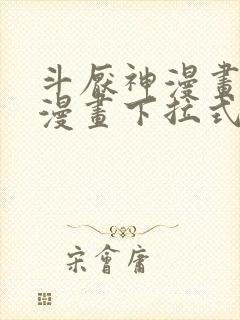 斗厭神漫畫
漫畫下拉式
宋會庸